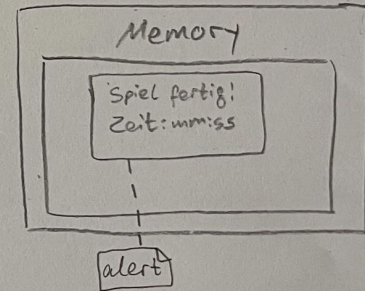 Memory
Spiel fertig!
Zeit: mm:ss
alert